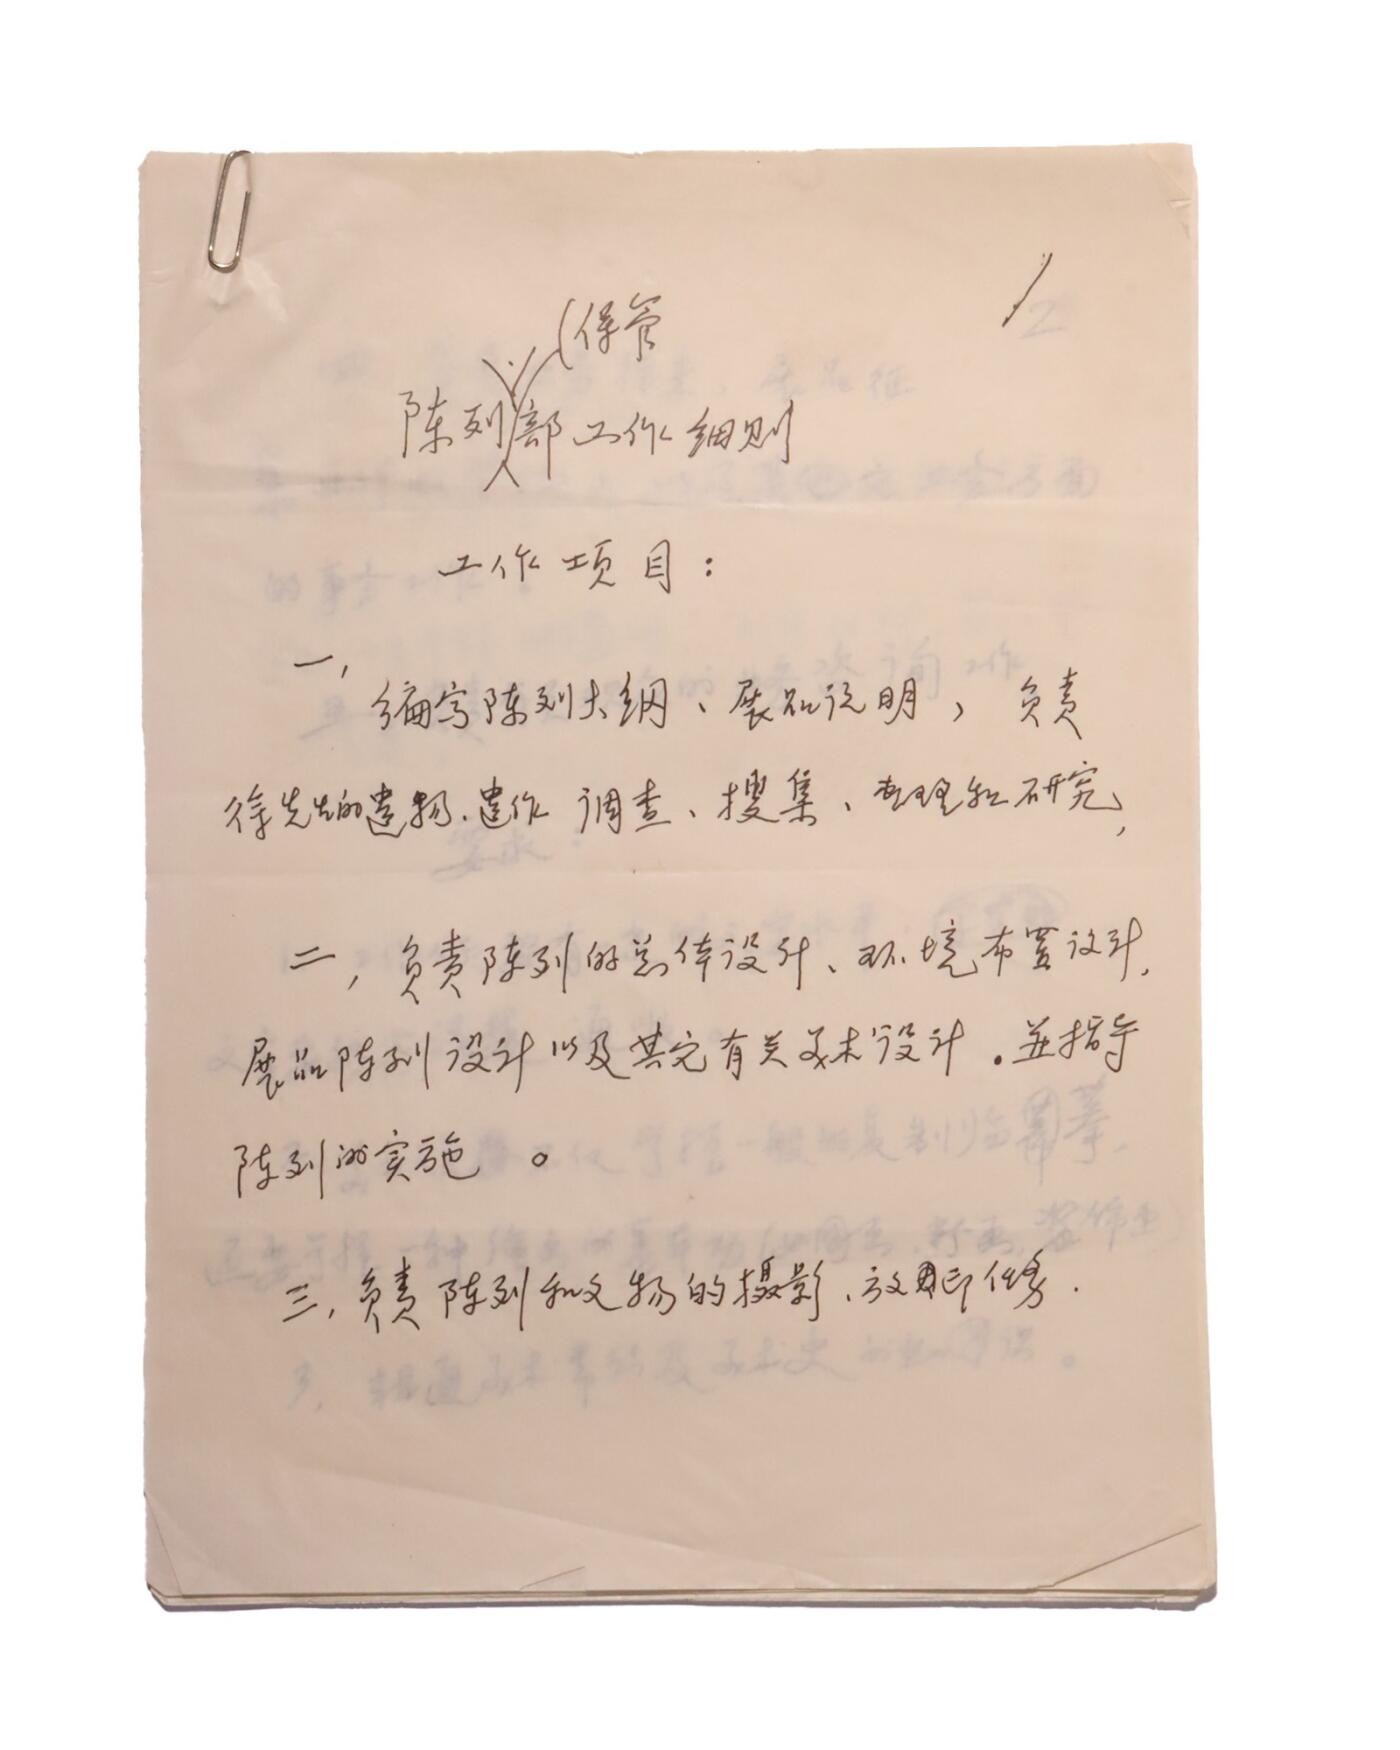 1
(保管
陈列部工作细则
工作项目:
一,
编写陈列大纲、展品说明,负责
徐先生的遗物、遗作 调查、搜集、整理和研究,
二,负责陈列的总体设计、环境布置设计,
展品陈列设计以及其它有关美术设计。並指导
陈列的实施。
三,负责陈列和文物的摄影、放印任务.